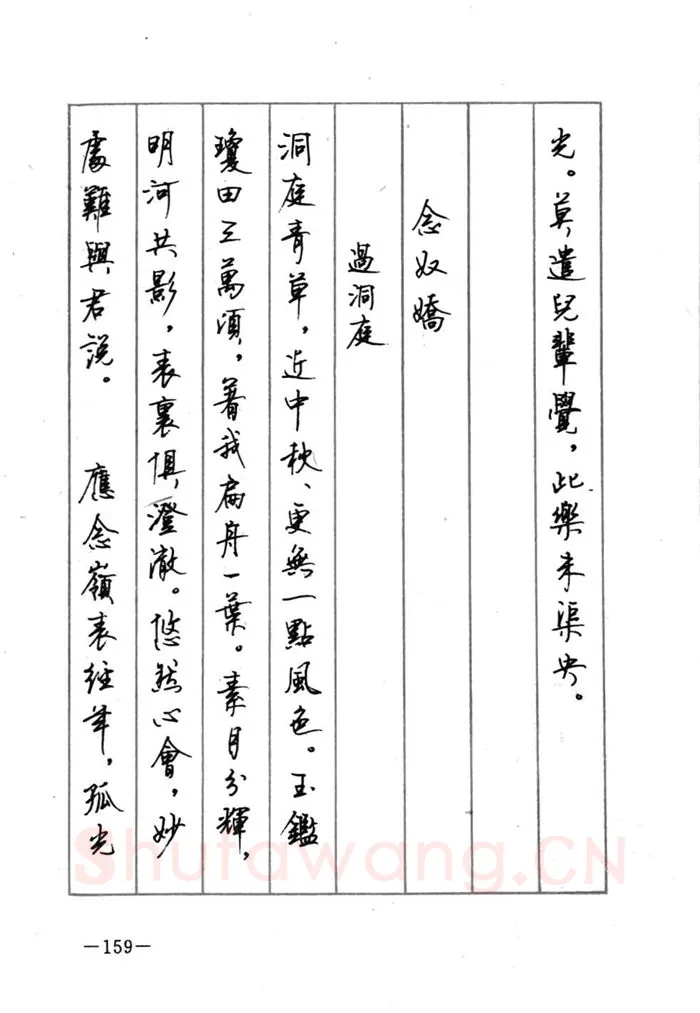 光。莫遣兒輩覺，此樂未渠央。
念奴嬌
過洞庭
洞庭青草，近中秋、更無一點風色。玉鑑
瓊田三萬頃，著我扁舟一葉。素月分輝，
明河共影，表裏俱澄澈。悠然心會，妙
處難與君說。　應念嶺表經年，孤光
—159—
Shufawang.CN